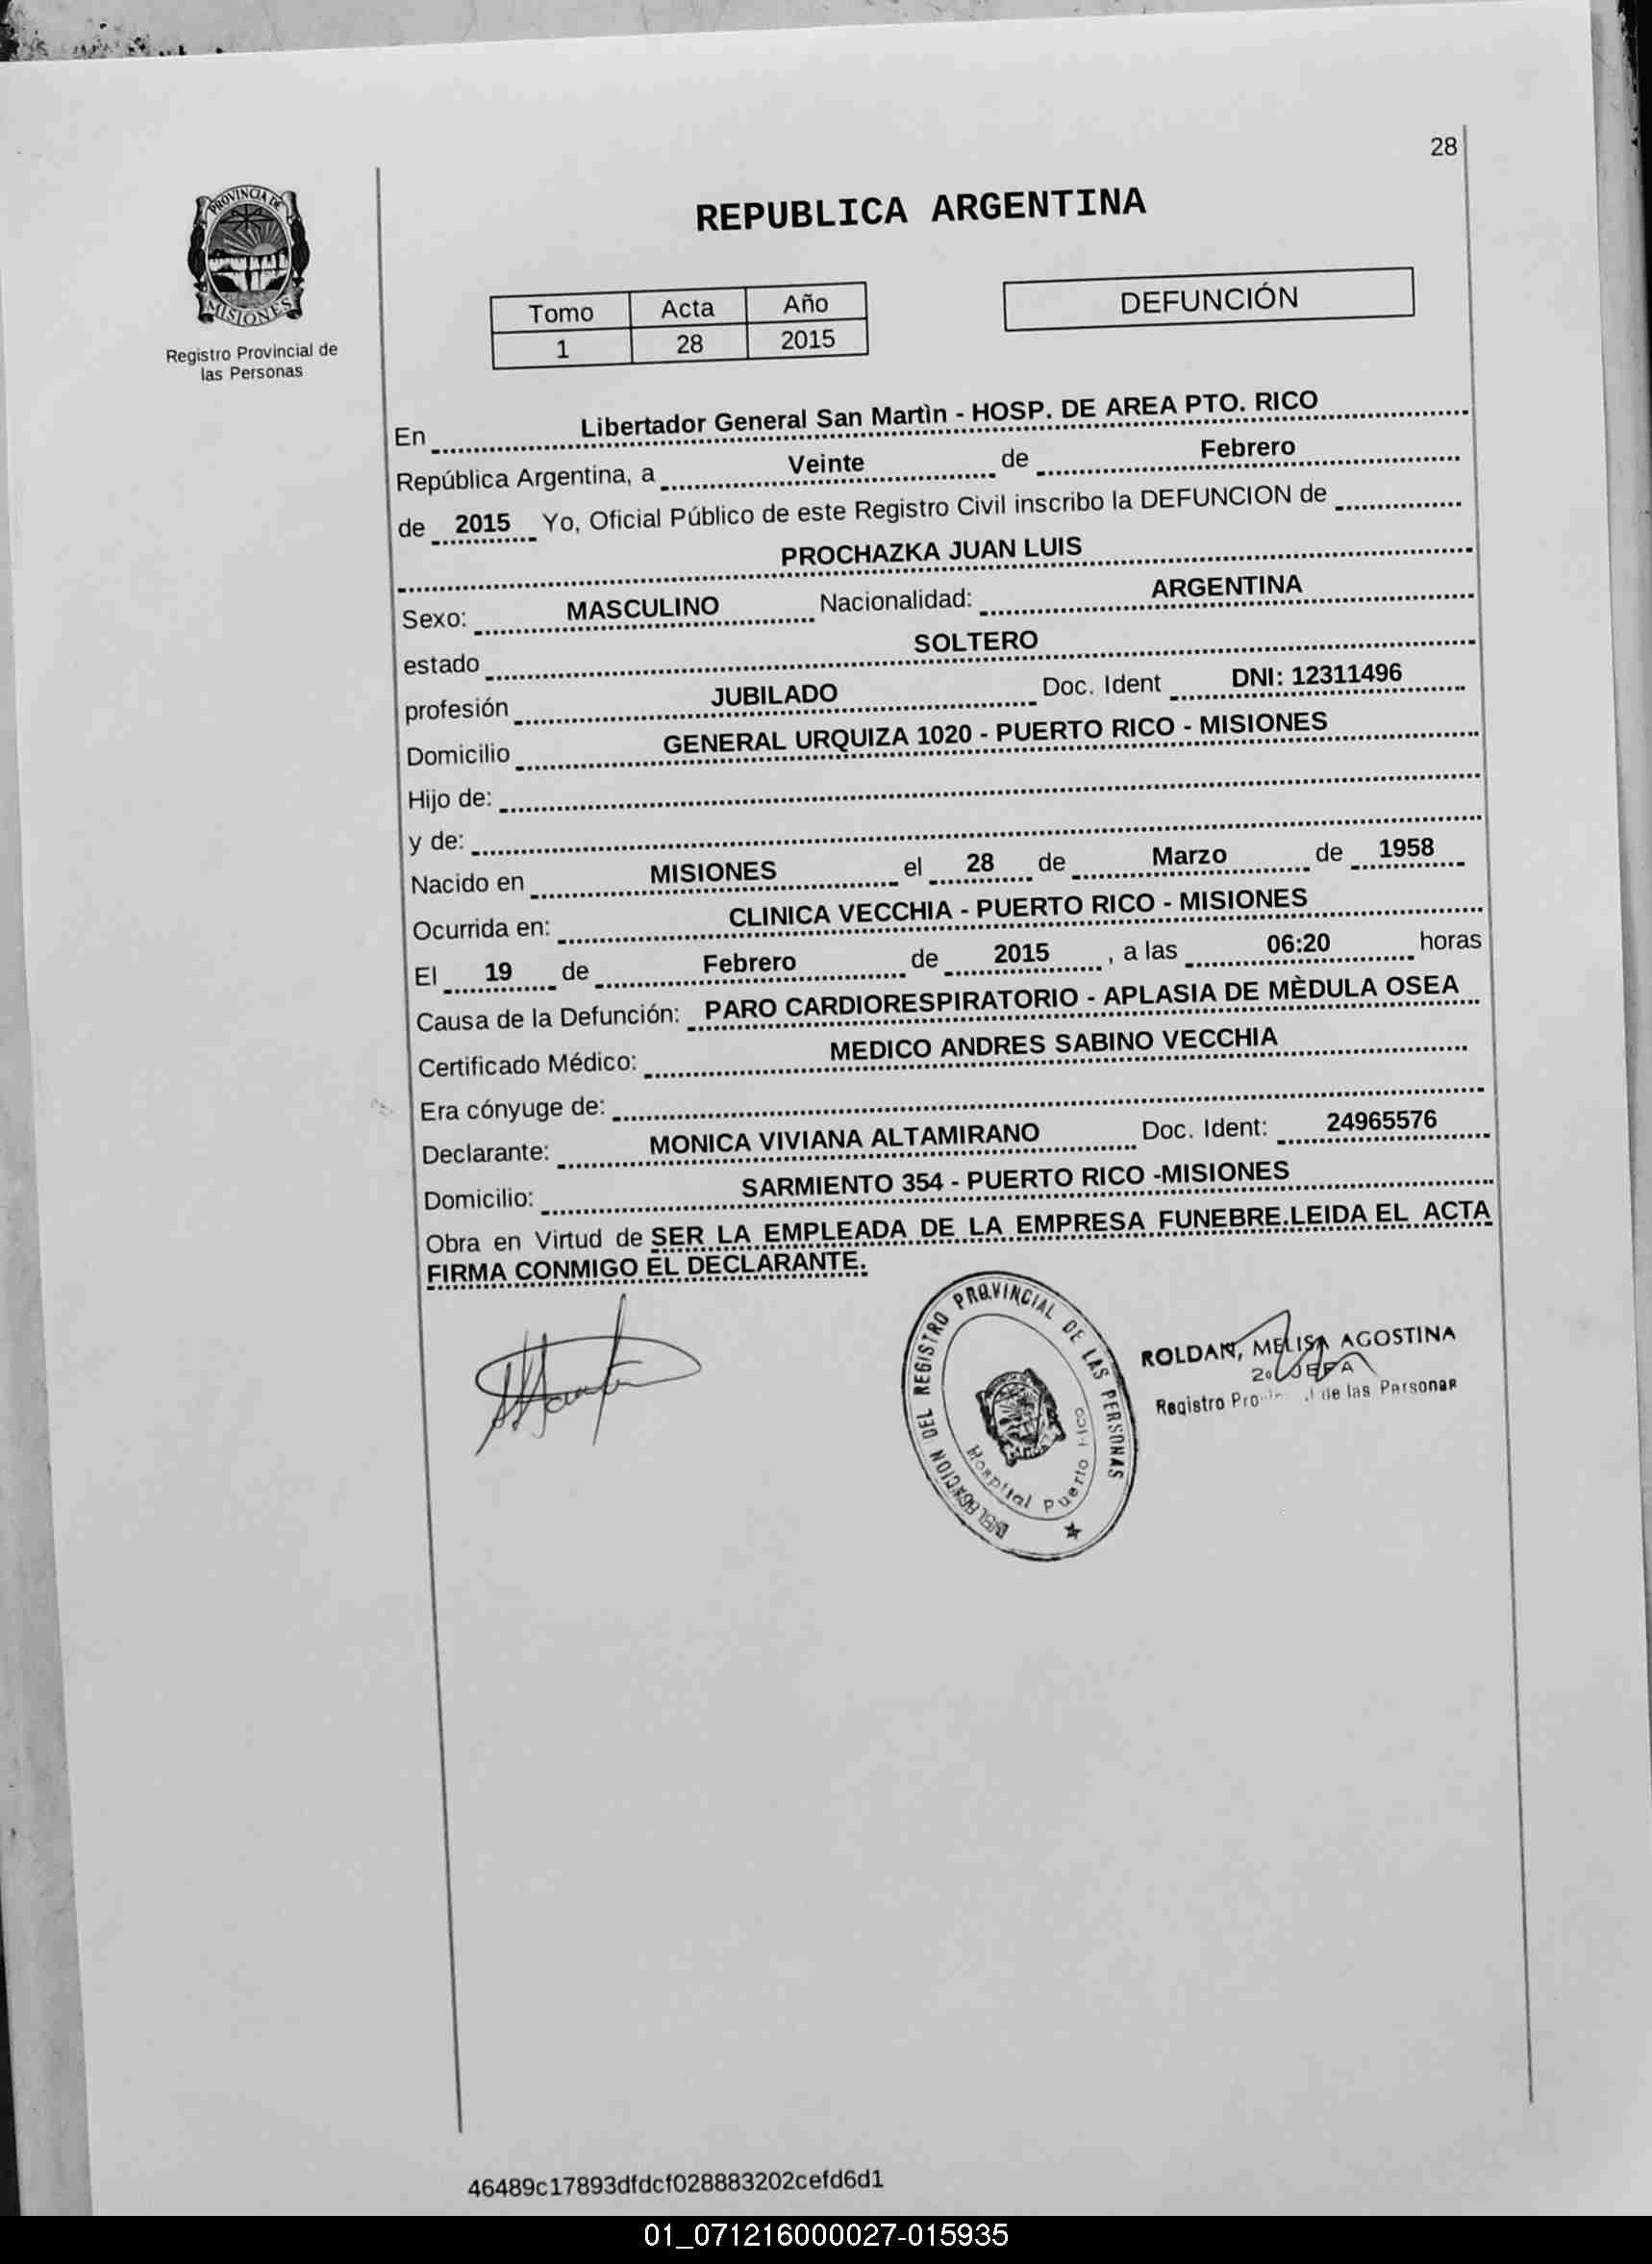 28
PROVINCIA DE
MISIONES
Registro Provincial de
las Personas
REPUBLICA ARGENTINA
Tomo Acta Año
1 28 2015
DEFUNCIÓN
En Libertador General San Martìn - HOSP. DE AREA PTO. RICO
República Argentina, a Veinte de Febrero
de 2015 Yo, Oficial Público de este Registro Civil inscribo la DEFUNCION de
PROCHAZKA JUAN LUIS
Sexo: MASCULINO Nacionalidad: ARGENTINA
estado SOLTERO
profesión JUBILADO Doc. Ident DNI: 12311496
Domicilio GENERAL URQUIZA 1020 - PUERTO RICO - MISIONES
Hijo de:
y de:
Nacido en MISIONES el 28 de Marzo de 1958
Ocurrida en: CLINICA VECCHIA - PUERTO RICO - MISIONES
El 19 de Febrero de 2015 , a las 06:20 horas
Causa de la Defunción: PARO CARDIORESPIRATORIO - APLASIA DE MÈDULA OSEA
Certificado Médico: MEDICO ANDRES SABINO VECCHIA
Era cónyuge de:
Declarante: MONICA VIVIANA ALTAMIRANO Doc. Ident: 24965576
Domicilio: SARMIENTO 354 - PUERTO RICO -MISIONES
Obra en Virtud de SER LA EMPLEADA DE LA EMPRESA FUNEBRE.LEIDA EL ACTA
FIRMA CONMIGO EL DECLARANTE.
DELEGACION DEL REGISTRO PROVINCIAL DE LAS PERSONAS
Hospital Puerto Rico
ROLDAN, MELISA AGOSTINA
JEFA
Registro de las Personas
46489c17893dfdcf028883202cefd6d1
01_071216000027-015935